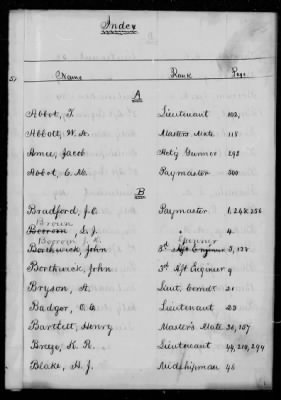 Index
Name Rank Page
A
Abbot, T. Lieutenant 102,
Abbott, W. A. Masters Mate 118
Amee, Jacob Act'g Gunner 292
Abbot, C. M. Paymaster 300
B
Bradford, J. C. Paymaster 1, 248 256
Brown
S. J. " 4
Gunner
Borthwick, John 3d Ass't Engineer 3, 128
Borthwick, John 3d Ass't Engineer 9
Bryson, A. Lieut. Comdr. 21
Badger, O. C. Lieutenant 23
Bartlett, Henry Master's Mate 36, 157
Breese, K. R. Lieutenant 44, 210, 294
Blake, H. J. Midshipman 46